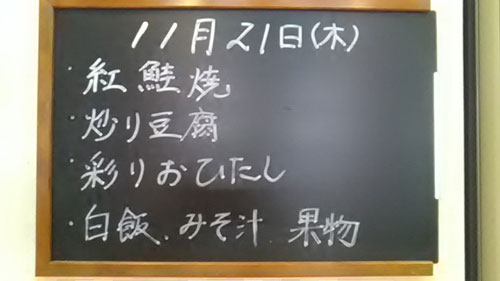 11月21日(木)
・紅鮭焼
・炒り豆腐
・彩りおひたし
・白飯.みそ汁 果物